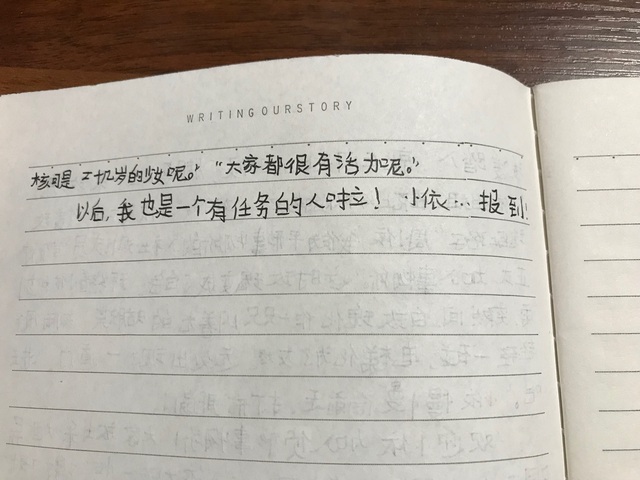 WRITINGOURSTORY
核可是二十几岁的少女呢。”“大家都很有活力呢。”
以后,我也是一个有任务的人啦!小依…报到!